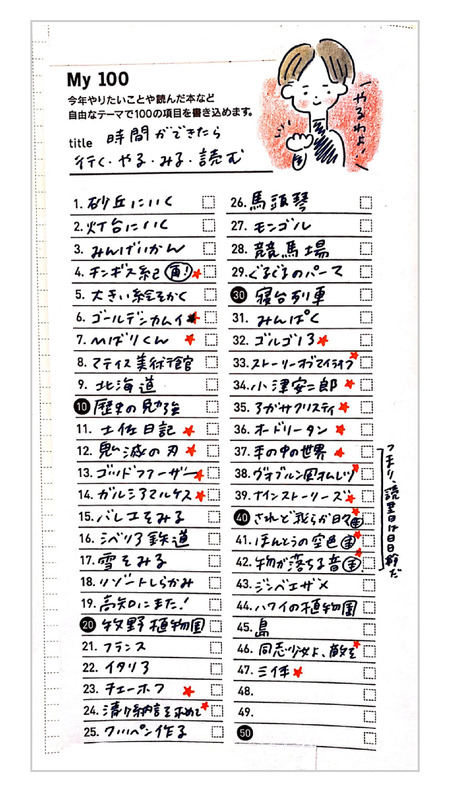 My 100
今年やりたいことや読んだ本など
自由なテーマで100の項目を書き込めます。
title 時間ができたら
行く・やる・みる・読む
やるわよ!!
1. 砂丘にいく
2. 灯台にいく
3. みんげいかん
4. チンギス紀 再!
5. 大きい絵をかく
6. ゴールデンカムイ
7. んばりくん
8. マティス美術館
9. 北海道
10 歴史の勉強
11. 土佐日記
12. 鬼滅の刃
13. ゴッドファーザー
14. ガルシアマルケス
15. バレエをみる
16. シベリア鉄道
17. 雪をみる
18. リゾートしらかみ
19. 高知にまた!
20 牧野植物園
21. フランス
22. イタリア
23. チェーホフ
24. 清少納言を求めて
25. クリペン作る
26. 馬頭琴
27. モンゴル
28. 競馬場
29. ぐるぐるのパーマ
30 寝台列車
31. みんぱく
32. ゴルゴ13
33. ストーリーオブマイライフ
34. 小津安二郎
35. アガサクリスティ
36. オードリータン
37. 手の中の世界
38. ヴォブルン風オムレツ
39. ナインストーリーズ
40 されど我らが日々
41. ほんとうの空色
42. 物が落ちる音
43. ジンベエザメ
44. ハワイの植物園
45. 島
46. 同志少女よ、敵を
47. 三体
48.
49.
50
つまり、読書は日日新だ